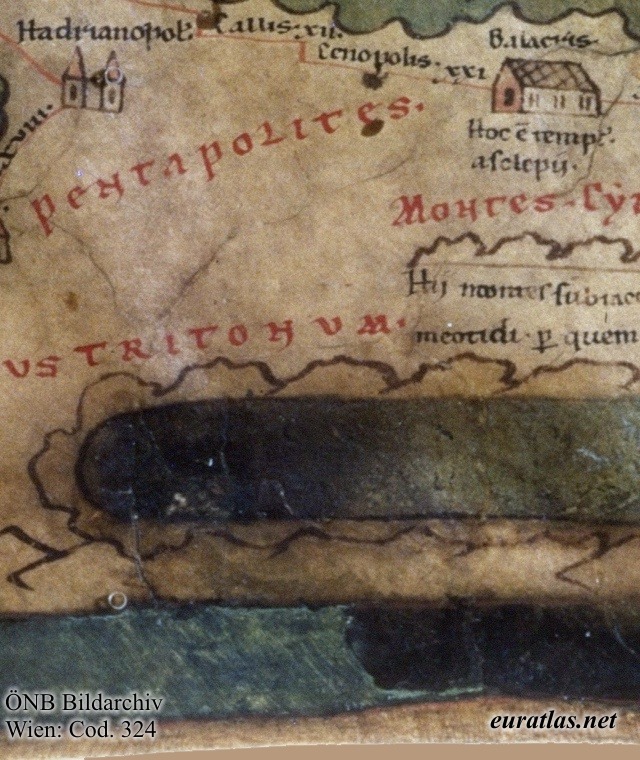 Hadrianopol. Callis. xii.
Cenopolis. xxi Balacris
Hoc ē templ.
asclepij.
PENTAPOLITES.
MONTES
Hij montes subiace
US TRITONUM.
meotidi. p quem
ÖNB Bildarchiv
Wien: Cod. 324
euratlas.net